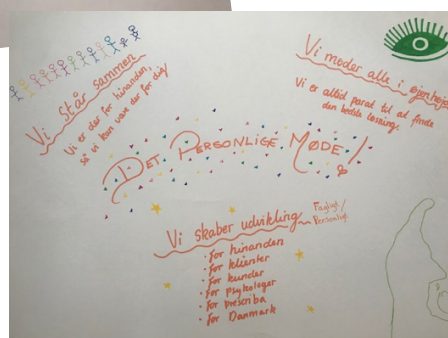 Vi står sammen
Vi er der for hinanden,
så vi kan være der for dig!
Vi møder alle i øjenhøjde
Vi er altid parat til at finde
den bedste løsning.
DET PERSONLIGE MØDE!
Vi skaber udvikling
Fagligt/
Personligt
· For hinanden
· For klienter
· For kunder
· For psykologer
· For prescriba
· For Danmark